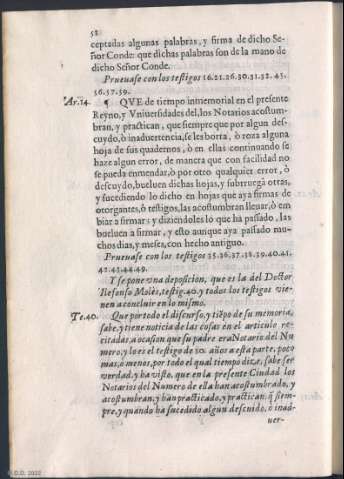 58
ceptadas algunas palabras, y firma de dicho Se-
ñor Conde: que dichas palabras son de la mano de
dicho Señor Conde.
Prueuase con los testigos 16.21.26.30.31.32.45.
56.57.59.
Ar.14. ¶ QVE de tiempo inmemorial en el presente
Reyno, y Vniuersidades del, los Notarios acostum-
bran, y practican, que siempre que por algun des-
cuydo, ò inaduertencia, se les borra, ò roza alguna
hoja de sus quadernos, ò en ellas continuando se
haze algun error, de manera que con facilidad no
se pueda enmendar, ò por otro qualquier error, ò
descuydo, bueluen dichas hojas, y subrruegà otras,
y sucediendo lo dicho en hojas que aya firmas de
otorgantes, ò testigos, las acostumbran llenar, ò em
biar a firmar: y diziendoles lo que hà passado, las
bueluen a firmar, y esto aunque aya passado mu-
chos dias, y meses, con hecho antiguo.
Prueuase con los testigos 35.36.37.38.39.40.41.
42.43.44.49.
Y se pone vna deposicion, que es la del Doctor
Ilefonso Molès, testig. 40. y todos los testigos vie-
nen a concluir en lo mismo.
Te.40. Que por todo el discurso, y tiẽpo de su memoria,
sabe, y tiene noticia de las cosas en el articulo re-
citadas, a ocasion que su padre era Notario del Nu
mero, y lo es el testigo de 20. años a esta parte, poco
mas, ò menos, por todo el qual tiempo dize, sabe ser
verdad, y ha visto, que en la presente Ciudad los
Notarios del Numero de ella han acostumbrado, y
acostumbran, y han practicado, y practican, q̃ siem-
pre, y quando ha sucedido algun descuido, ò inad-
uer-